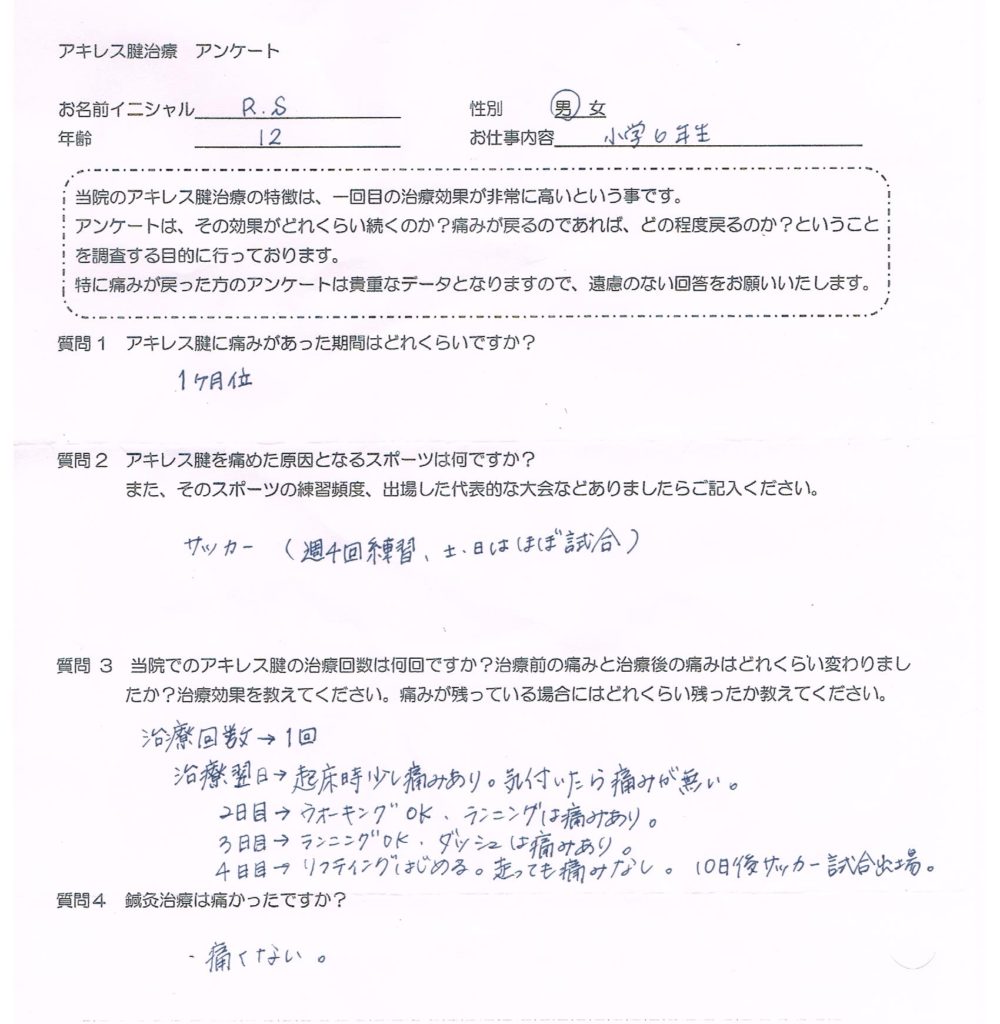 アキレス腱治療　アンケート
お名前イニシャル R.S 性別 男 女
年齢 12 お仕事内容 小学6年生
当院のアキレス腱治療の特徴は、一回目の治療効果が非常に高いという事です。
アンケートは、その効果がどれくらい続くのか？痛みが戻るのであれば、どの程度戻るのか？ということ
を調査する目的に行っております。
特に痛みが戻った方のアンケートは貴重なデータとなりますので、遠慮のない回答をお願いいたします。
質問1　アキレス腱に痛みがあった期間はどれくらいですか？
1ヶ月位
質問2　アキレス腱を痛めた原因となるスポーツは何ですか？
また、そのスポーツの練習頻度、出場した代表的な大会などありましたらご記入ください。
サッカー （週4回練習、土・日はほぼ試合）
質問 3　当院でのアキレス腱の治療回数は何回ですか？治療前の痛みと治療後の痛みはどれくらい変わりまし
たか？治療効果を教えてください。痛みが残っている場合にはどれくらい残ったか教えてください。
治療回数→1回
治療翌日→起床時少し痛みあり。気付いたら痛みが無い。
2日目→ウォーキングOK、ランニングは痛みあり。
3日目→ランニングOK、ダッシュは痛みあり。
4日目→リフティングはじめる。走っても痛みなし。 10日後サッカー試合出場。
質問4　鍼灸治療は痛かったですか？
・痛くない。